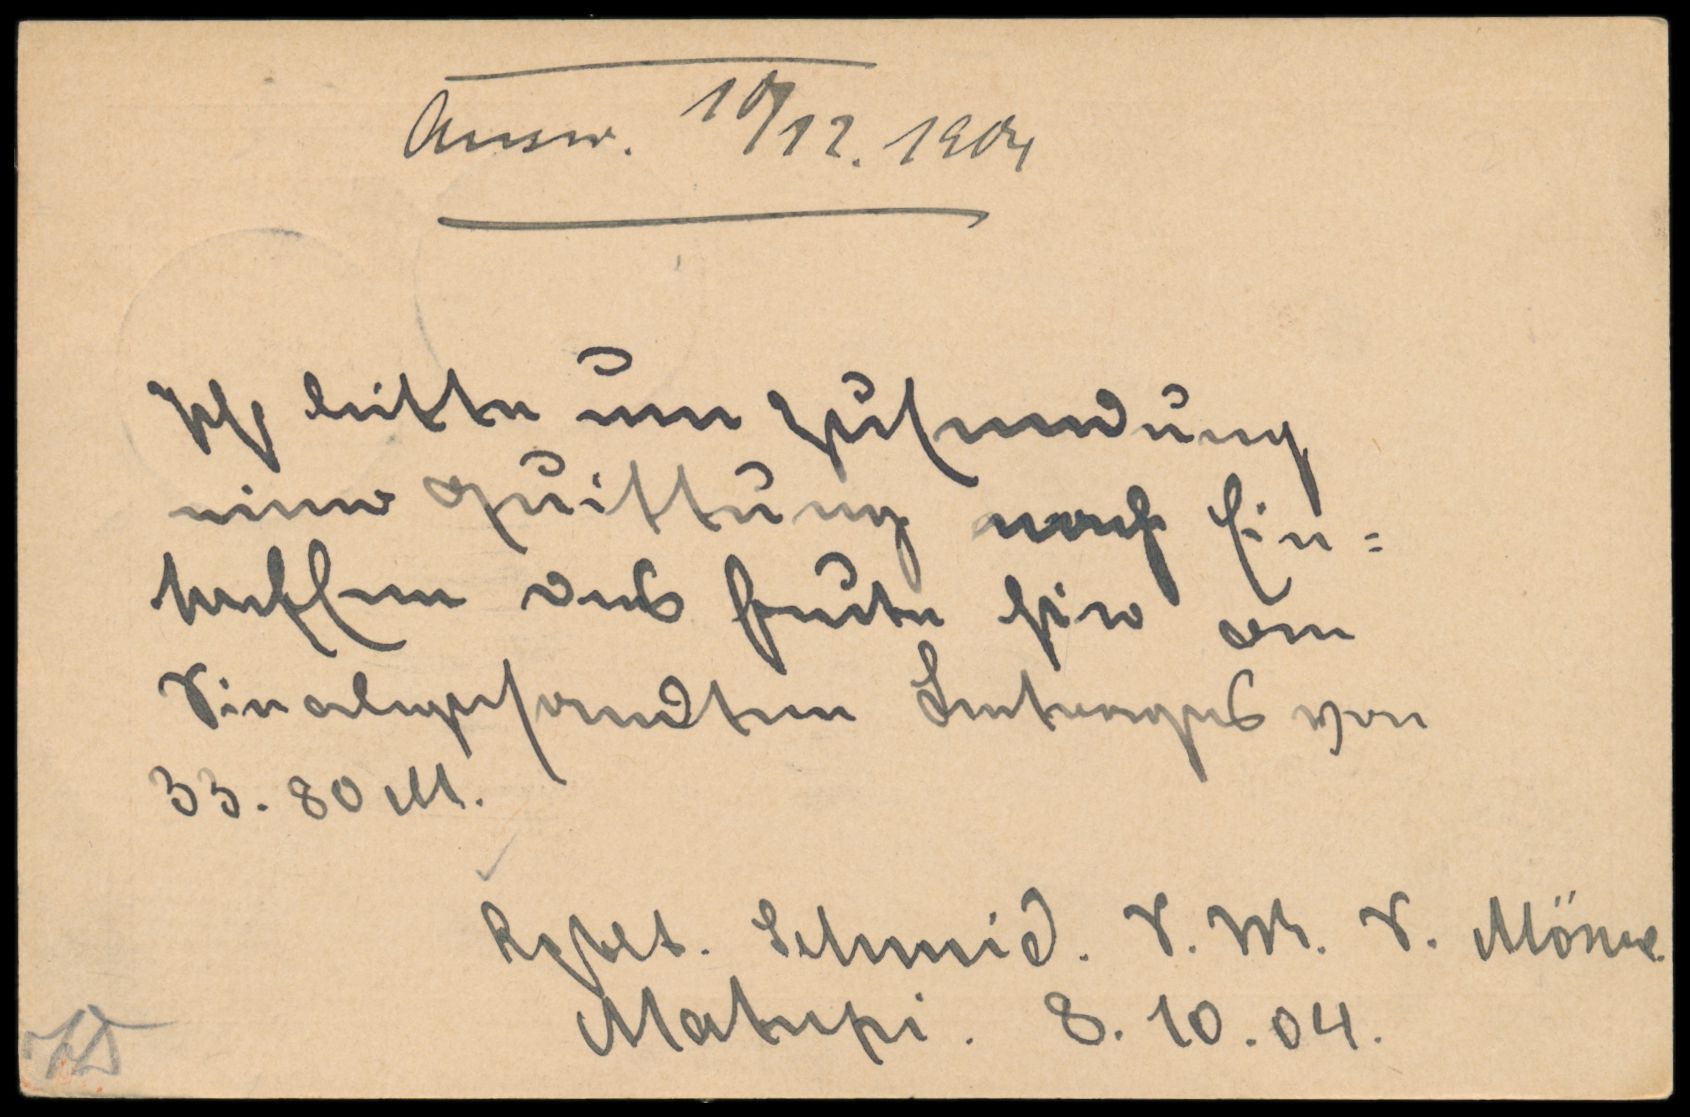 Answ. 10/12. 1904
Ich bitte um Zusendung
einer Quittung nach Ein=
treffen des heute hier an
Sie abgesandten Betrages von
33.80 M.
Kaptlt. Schmid. S. M. S. Möwe.
Matupi. 8.10.04.